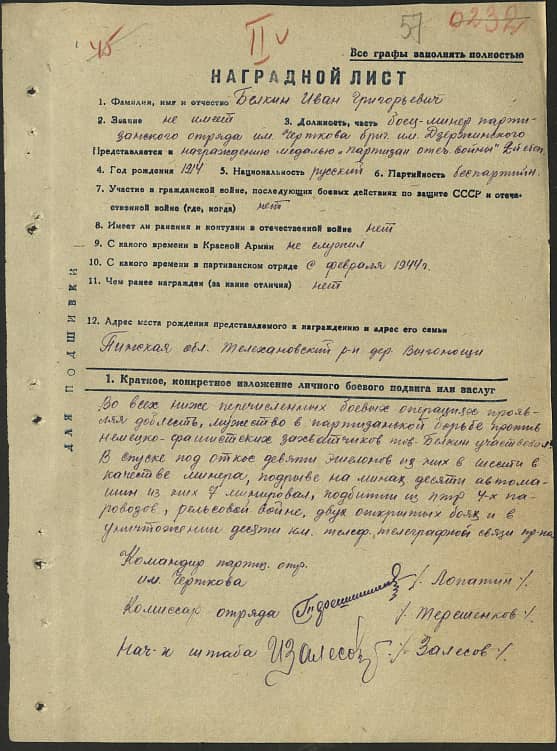 45
II v
57
0232
Все графы заполнять полностью
НАГРАДНОЙ ЛИСТ
1. Фамилия, имя и отчество Белкин Иван Григорьевич
2. Звание не имеет 3. Должность, часть боец-минер парти-
занского отряда им. Черткова бриг. им. Дзержинского
Представляется к награждению медалью „партизан отеч. войны" 2й ст.
4. Год рождения 1914 5. Национальность русский 6. Партийность беспартийн.
7. Участие в гражданской войне, последующих боевых действиях по защите СССР и отече-
ственной войне (где, когда) нет
8. Имеет ли ранения и контузии в отечественной войне нет
9. С какого времени в Красной Армии не служил
10. С какого времени в партизанском отряде с февраля 1944г.
11. Чем ранее награжден (за какие отличия) нет
12. Адрес места рождения представляемого к награждению и адрес его семьи
Пинская обл. Телехановский р-н дер. Выгонощи
ДЛЯ ПОДШИВКИ
1. Краткое, конкретное изложение личного боевого подвига или заслуг
Во всех ниже перечисленных боевых операциях прояв-
ляя доблесть, мужество в партизанской борьбе против
немецко-фашистских захватчиков тов. Белкин участвовал
В спуске под откос девяти эшелонов из них в шести в
качестве минера, подрыве на минах десяти автома-
шин из них 7 минировал, подбитии из птр 4-х па-
ровозов, рельсовой войне, двух открытых боях и в
уничтожении десяти км. телеф. телеграфной связи пр-ка
Командир партиз. отр.
им. Черткова /Лопатин/.
Комиссар отряда /Терешенков/.
Нач-к штаба ИЗалесов /Залесов/.